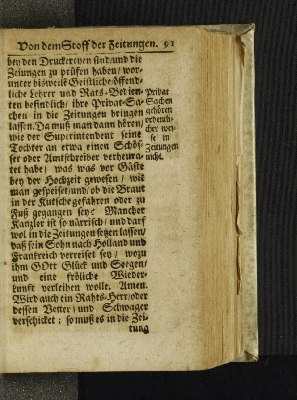 Von dem Stoff der Zeitungen. 91
bey den Druckereyen sind/und die
Zeiungen zu prüfen haben/wor-
unter bisweilē Geistliche/öffent-
liche Lehrer und Rats-Bedien-
ten befindlich/ ihre Privat-Sa-
chen in die Zeitungen bringen
lassen. Da muß man dann hören/
wie der Superintendent seine
Tochter an etwa einen Schös-
ser oder Amtschreiber verheura-
tet habe/ was vor Gäste
bey der Hochzeit gewesen/ wie
man gespeiset/und/ob die Braut
in der Kutsche gefahren oder zu
Fuß gegangen seye Mancher
Kanzler ist so närrisch/ und darf
wol in die Zeitungen setzen lassen/
daß sein Sohn nach Holland und
Frankreich verreiset sey/ wozu
ihm GOtt Glück und Seegen/
und eine fröliche Wieder-
kunft verleihen wolle. Amen.
Wird auch ein Rahts-Herr/oder
dessen Vetter/ und Schwager
verschicket; so muß es in die Zei-
tung
Privat
Sachen
gehören
ordentli-
cher wei-
se in
Zeitungen
nicht.